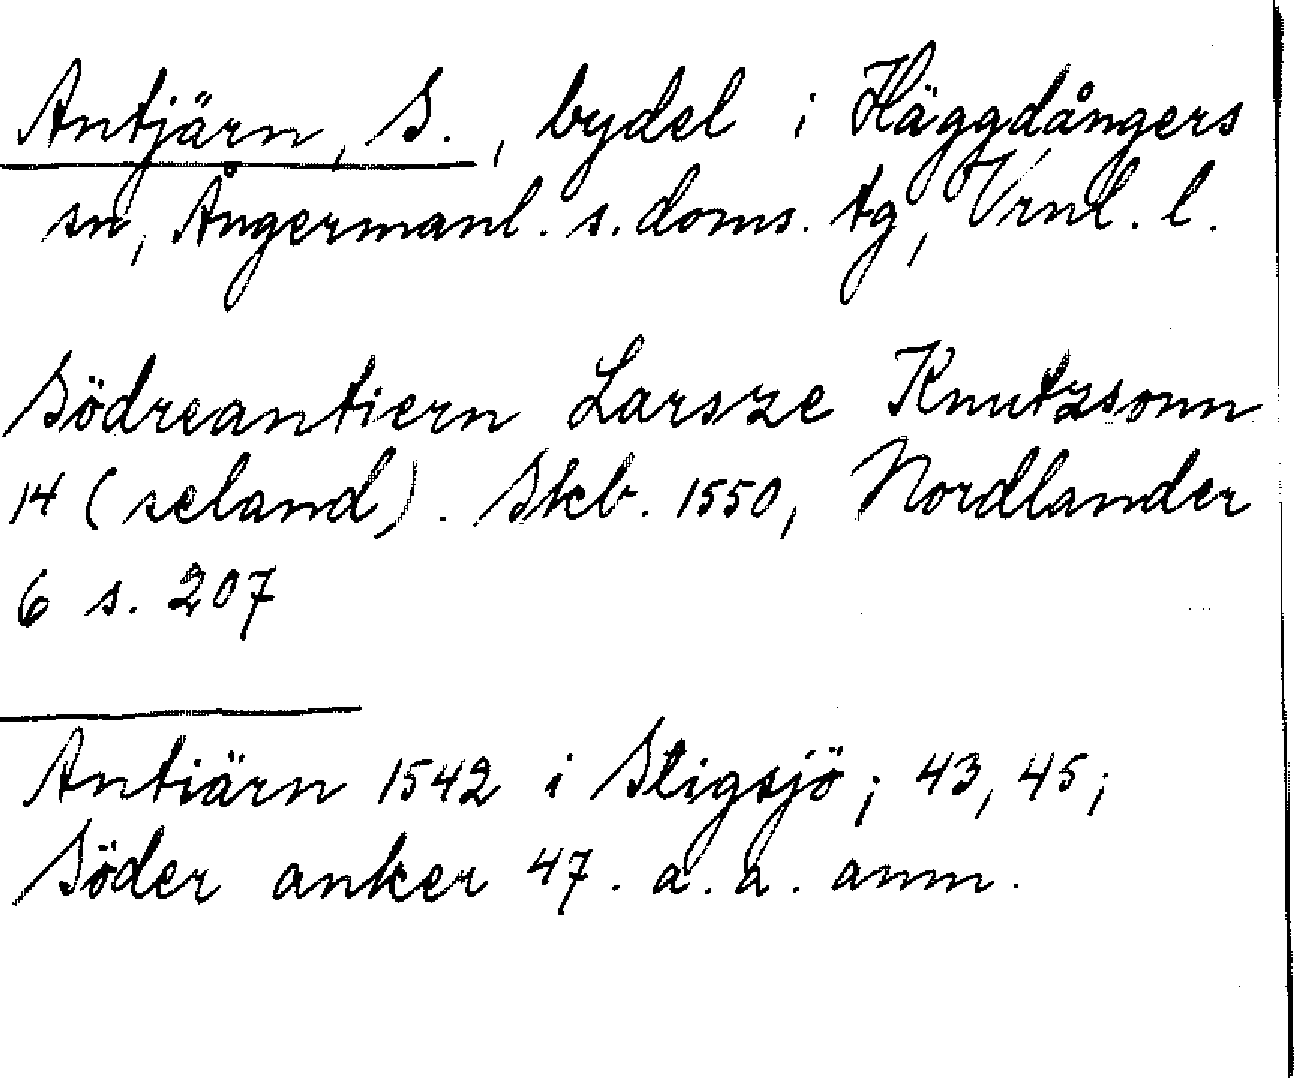 Antjärn, S., bydel i Häggdångers
sn, Ångermanl. s. doms. tg, Vrnl. l.
Södreantiern Larsze Knutzsonn
14 (seland). Skb. 1550, Nordlander
6 s. 207
Antiärn 1542 i Stigsjö; 43, 45;
Söder anker 47. a. a. anm.